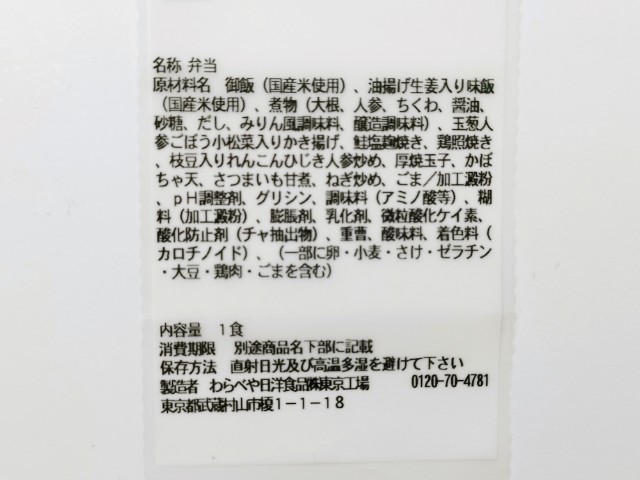 名称 弁当
原材料名 御飯（国産米使用）、油揚げ生姜入り味飯
（国産米使用）、煮物（大根、人参、ちくわ、醤油、
砂糖、だし、みりん風調味料、醸造調味料）、玉葱人
参ごぼう小松菜入りかき揚げ、鮭塩麹焼き、鶏照焼き
、枝豆入りれんこんひじき人参炒め、厚焼玉子、かぼ
ちゃ天、さつまいも甘煮、ねぎ炒め、ごま／加工澱粉
、ｐＨ調整剤、グリシン、調味料（アミノ酸等）、糊
料（加工澱粉）、膨脹剤、乳化剤、微粒酸化ケイ素、
酸化防止剤（チャ抽出物）、重曹、酸味料、着色料（
カロチノイド）、（一部に卵・小麦・さけ・ゼラチン
・大豆・鶏肉・ごまを含む）
内容量 １食
消費期限 別途商品名下部に記載
保存方法 直射日光及び高温多湿を避けて下さい
製造者 わらべや日洋食品㈱東京工場 0120-70-4781
東京都武蔵村山市榎１－１－１８